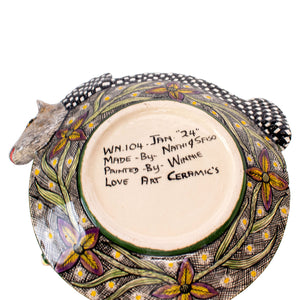 WN.104. JAN "24"
MADE - By- NATHI & SFISO
PAINTED - By- WINNIE
LOVE ART CERAMIC'S